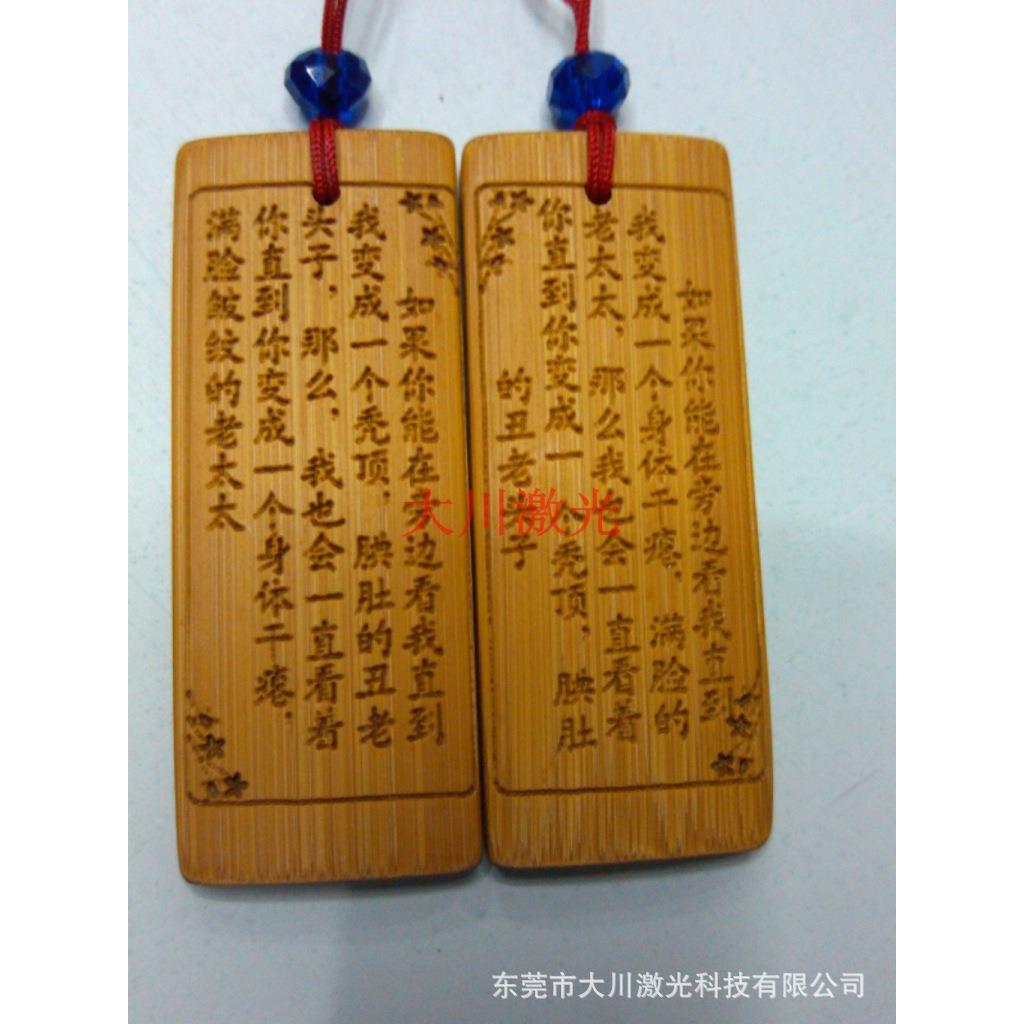 如果你能在旁边看我直到
我变成一个秃顶，腆肚的丑老
头子，那么，我也会一直看着
你直到你变成一个身体干瘪，
满脸皱纹的老太太
如果你能在旁边看我直到
我变成一个身体干瘪，满脸的
老太太，那么我也会一直看着
你直到你变成一个秃顶，腆肚
的丑老头子
大川激光
东莞市大川激光科技有限公司